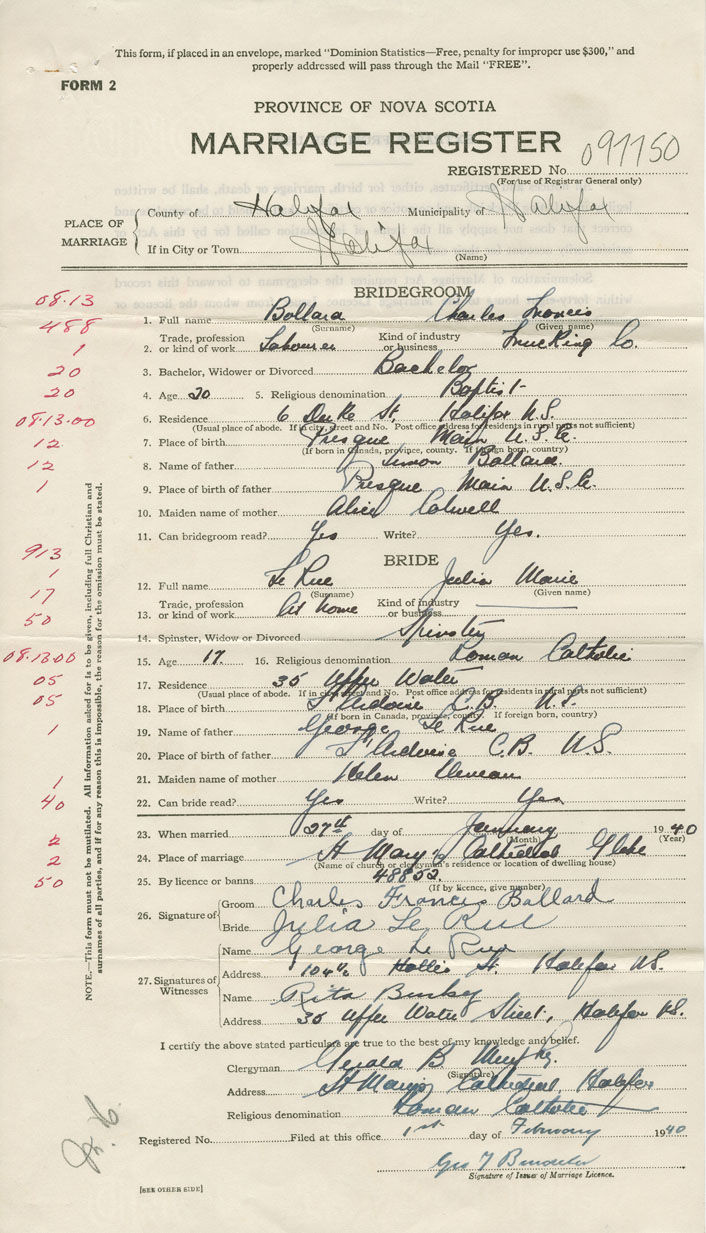 This form, if placed in an envelope, marked "Dominion Statistics—Free, penalty for improper use $300," and
properly addressed will pass through the Mail "FREE".
FORM 2
PROVINCE OF NOVA SCOTIA
MARRIAGE REGISTER
091150
REGISTERED No.
(For use of Registrar General only)
PLACE OF MARRIAGE
County of Halifax Municipality of Halifax
If in City or Town Halifax
(Name)
BRIDEGROOM
08.13
1. Full name Ballard Charles Francis
(Surname) (Given name)
488
2. Trade, profession or kind of work Labourer Kind of industry or business Trucking Co.
1
3. Bachelor, Widower or Divorced Bachelor
20
4. Age 20 5. Religious denomination Baptist
20
6. Residence 6 Duke St. Halifax N.S.
(Usual place of abode. If in city, street and No. Post office address for residents in rural parts not sufficient)
08.13.00
7. Place of birth Presque Main U.S.A.
(If born in Canada, province, county. If foreign born, country)
12
8. Name of father Simon Ballard.
12
9. Place of birth of father Presque Main U.S.A.
1
10. Maiden name of mother Alice Colwell
11. Can bridegroom read? Yes Write? Yes.
BRIDE
913
12. Full name Le Rue Julia Marie
(Surname) (Given name)
1
17
13. Trade, profession or kind of work At home Kind of industry or business
50
14. Spinster, Widow or Divorced Spinster
08.13.00
15. Age 17. 16. Religious denomination Roman Catholic
05
17. Residence 35 Upper Water
(Usual place of abode. If in city, street and No. Post office address for residents in rural parts not sufficient)
05
18. Place of birth C.B. N.S.
(If born in Canada, province, county. If foreign born, country)
1
19. Name of father George Le Rue
20. Place of birth of father C.B. N.S.
21. Maiden name of mother Helen
1
22. Can bride read? Yes Write? Yes
40
23. When married 27th day of January 1940
(Month) (Year)
2
24. Place of marriage St Mary's Cathedral Glebe
(Name of church or clergymen's residence or location of dwelling house)
2
25. By licence or banns 48853.
(If by licence, give number)
50
26. Signature of
Groom Charles Francis Ballard
Bride Julia Le Rue
27. Signatures of Witnesses
Name George Le Rue
Address 104½ Hollis St. Halifax N.S.
Name Rita
Address 35 Upper Water Street, Halifax N.S.
I certify the above stated particulars are true to the best of my knowledge and belief.
Clergyman Gerald B Murphy.
(Signature)
Address St Mary's Cathedral, Halifax
Religious denomination Roman Catholic
Registered No. Filed at this office 1st day of February 1940
Signature of Issuer of Marriage Licence.
[SEE OTHER SIDE]
NOTE.—This form must not be mutilated. All information asked for is to be given, including full Christian and
surnames of all parties, and if for any reason this is impossible, the reason for the omission must be stated.